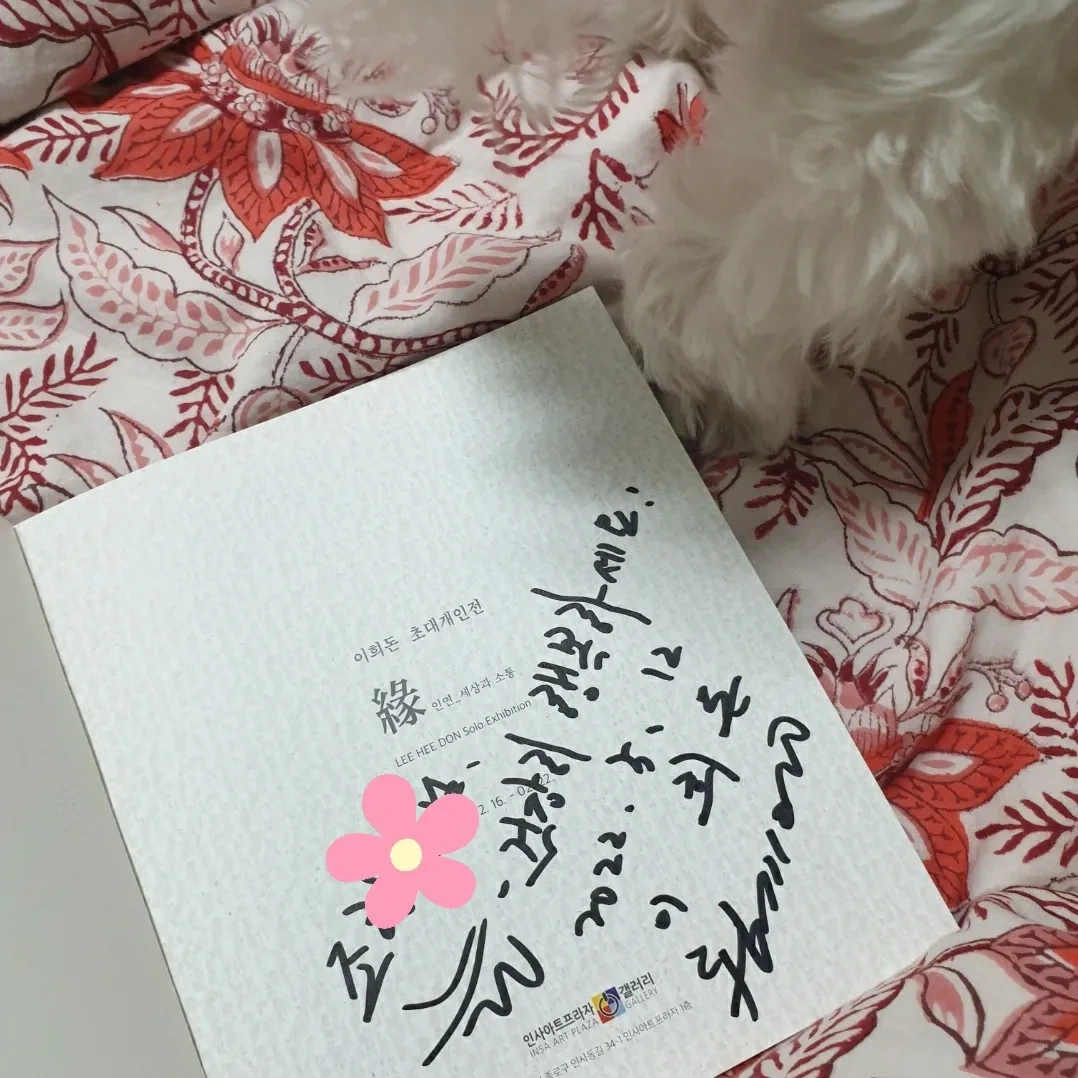 이희돈 초대개인전
緣 인연_세상과 소통
LEE HEE DON Solo Exhibition
2. 16. - 02. 22.
늘 · 건강히 행복하세요.
2022. 5. 12
이 희 돈
인사아트프라자 갤러리
INSA ART PLAZA GALLERY
종로구 인사동길 34-1 인사아트프라자 1층